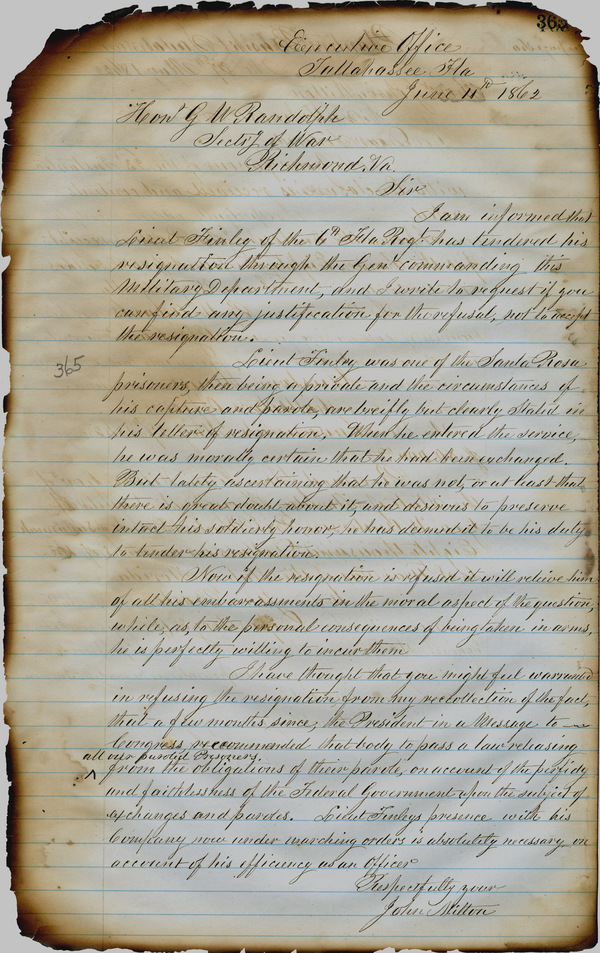 365
Executive Office
Tallahassee Fla
June 11th 1862
Honl G W Randolph
Secty of War
Richmond Va
Sir
I am informed that
Lieut Finley of the 6th Fla Regt has tendered his
resignation through the Genl commanding this
Military Department, and I write to request if you
can find any justification for the refusal, not to accept
the resignation.
365
Lieut Finley was one of the Santa Rosa
prisoners, then being a private and the circumstances of
his capture and parole, are briefly but clearly stated in
his letter of resignation. When he entered the service,
he was morally certain that he had been exchanged.
But lately ascertaining that he was not, or at least that
there is great doubt about it, and desirous to preserve
intact his soldierly honor, he has deemed it to be his duty
to tender his resignation.
Now if the resignation is refused it will relieve him
of all his embarassments in the moral aspect of the question,
while, as, to the personal consequences of being taken in arms,
he is perfectly willing to incur them
I have thought that you might feel warranted
in refusing the resignation from my recollection of the fact,
that a few months since, the President in a Message to
Congress, reccommended that body to pass a law releasing
all our paroled Prisoners,
from the obligations of their parole, on account of the perfidy
and faithlessness of the Federal Government upon the subject of
exchanges and paroles. Lieut Finleys presence with his
Company now under marching orders is absolutely necessary on
account of his efficiency as an Officer
Respectfully your
John Milton